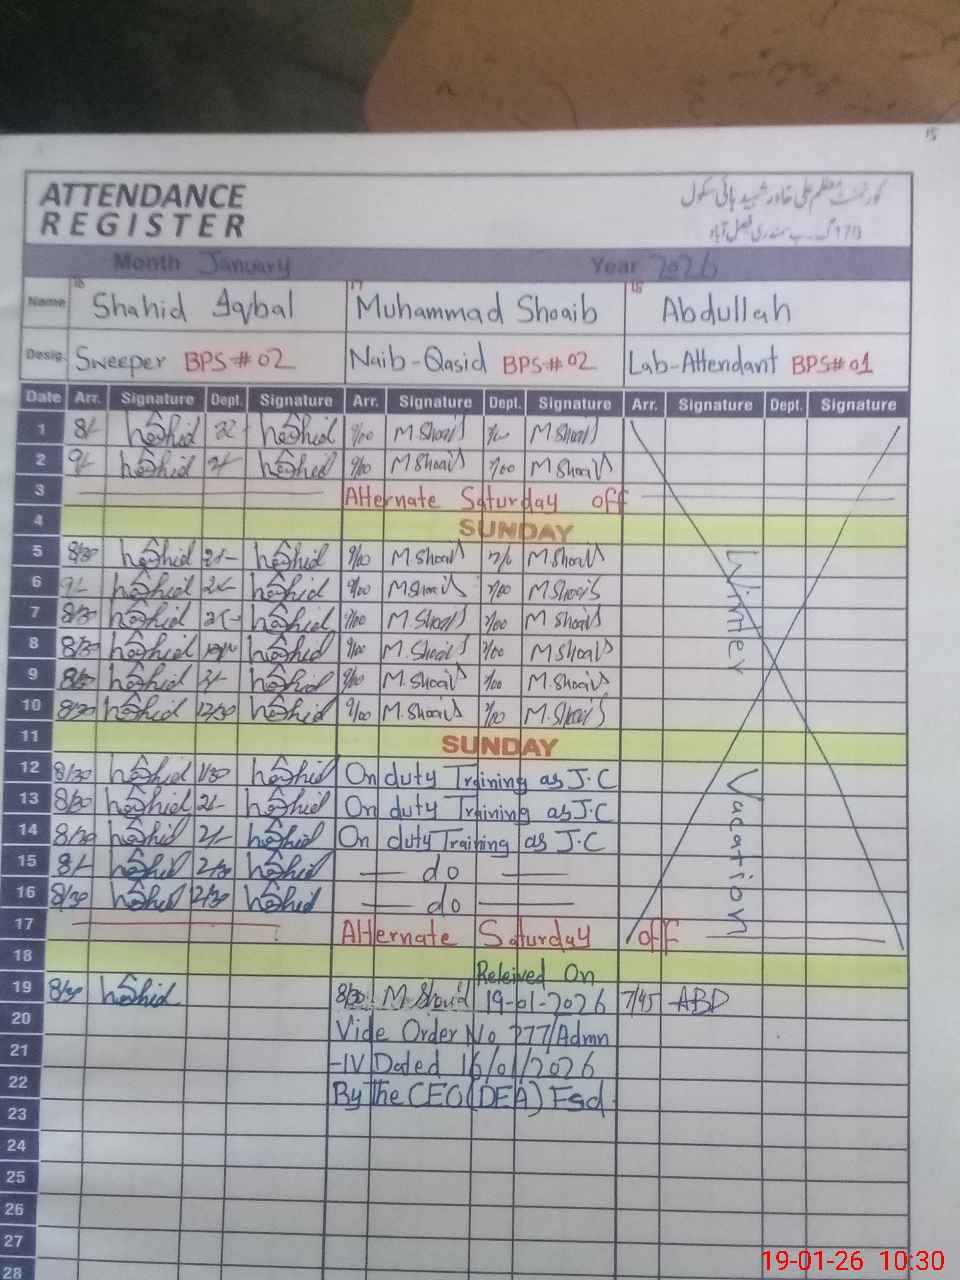 15
ATTENDANCE
REGISTER
گورنمنٹ معظم علی خادر شہید ہائی سکول
170 گ۔ب سمندری فیصل آباد
Month January Year 2026
Name 16 Shahid Iqbal 17 Muhammad Shoaib 18 Abdullah
Desig. Sweeper BPS#02 Naib-Qasid BPS#02 Lab-Attendant BPS#01
Date Arr. Signature Dept. Signature Arr. Signature Dept. Signature Arr. Signature Dept. Signature
1 8/- 9/00 M.Shoaib M.Shoaib
2 9/- 9/00 M.Shoaib 2/00 M.Shoaib
3 Alternate Saturday off
4 SUNDAY
5 8/30 9/00 M.Shoaib M.Shoaib
6 9/- 2/- 9/00 M.Shoaib 2/00 M.Shoaib
7 8/30 9/00 M.Shoaib 2/00 M.Shoaib
8 8/30 9/00 M.Shoaib 2/00 M.Shoaib
9 8/30 2/- 9/00 M.Shoaib 2/00 M.Shoaib
10 8/30 12/30 9/00 M.Shoaib 2/00 M.Shoaib
Winter Vacation
11 SUNDAY
12 8/30 1/30 On duty Training as J.C
13 8/30 2/- On duty Training as J.C
14 8/30 2/- On duty Training as J.C
15 8/- 2/30 — do —
16 8/30 2/30 — do —
17 Alternate Saturday off
18
Releived On
19 8/30 8/30 M.Shoaib 19-01-2026 7/45 ABD
20 Vide Order No 277/Admn
21 -IV Dated 16/01/2026
22 By the CEO (DEA) Fsd.
23
24
25
26
27
28
19-01-26 10:30